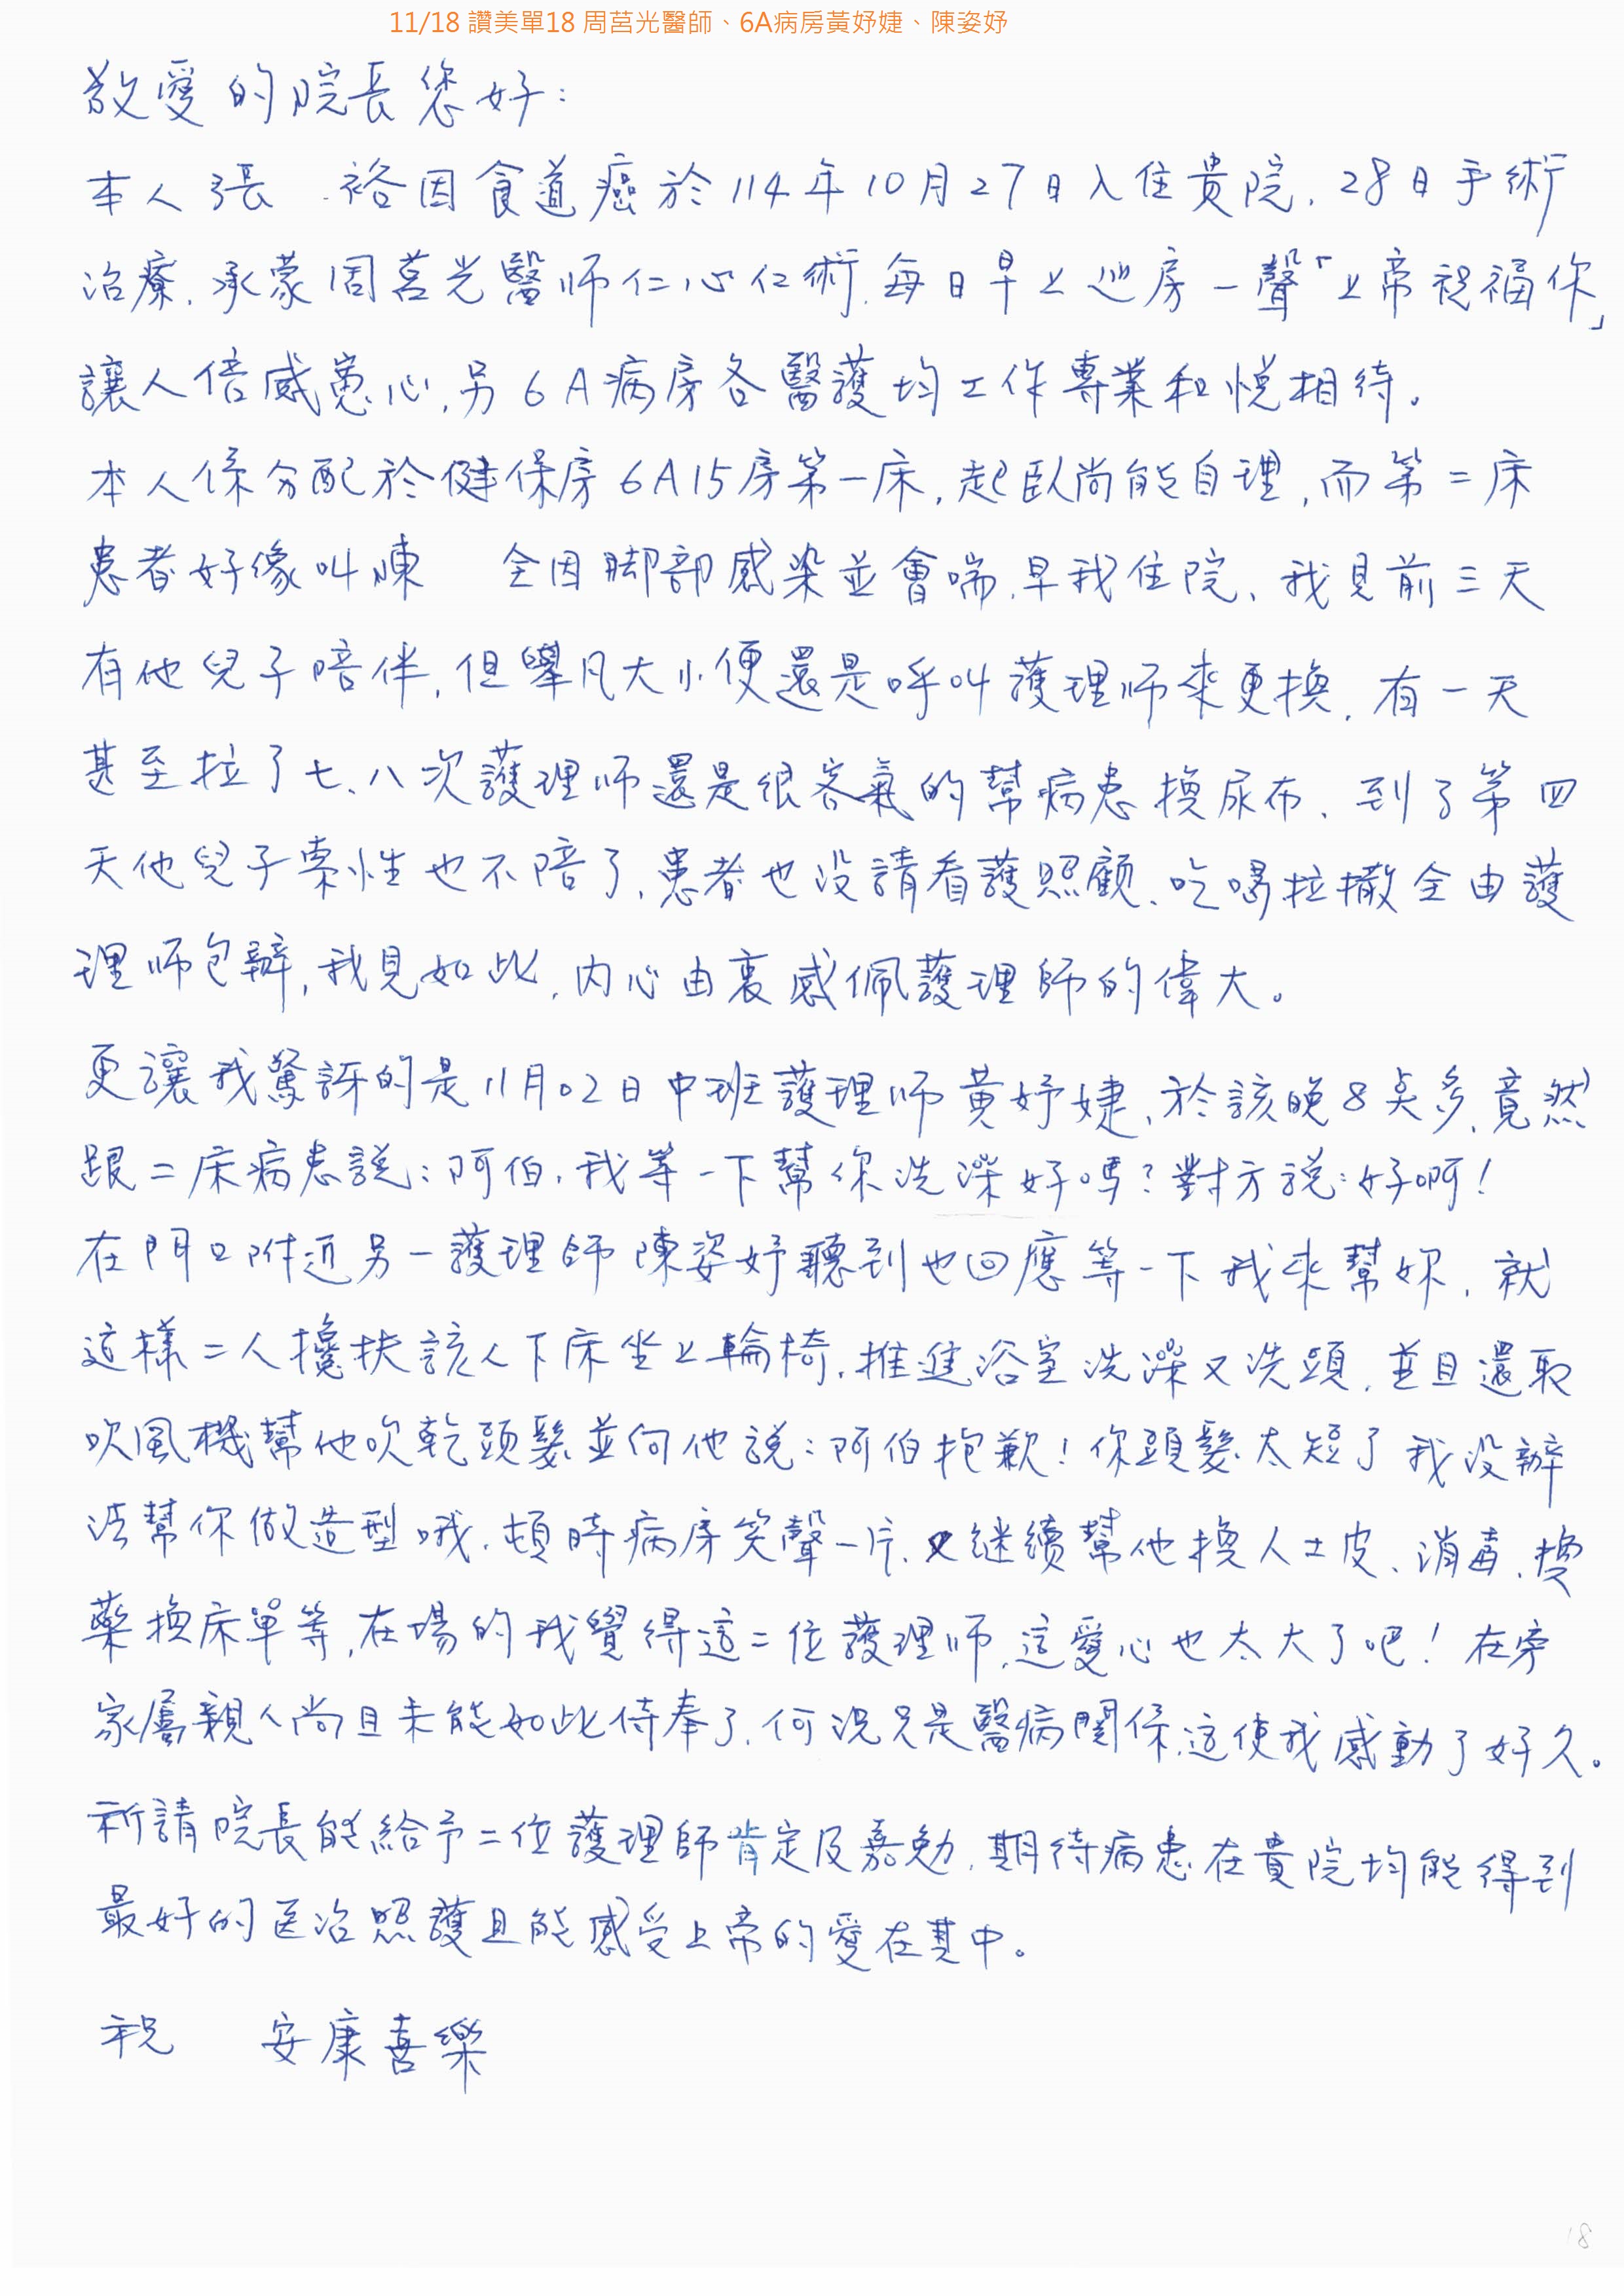 11/18 讚美單18 周莒光醫師、6A病房黃妤婕、陳姿妤
敬愛的院長您好:
本人張 裕因食道癌於114年10月27日入住貴院,28日手術
治療,承蒙周莒光醫師仁心仁術,每日早上巡房一聲「上帝祝福你」
讓人倍感窩心,另6A病房各醫護均工作專業和悅相待。
本人係分配於健保房6A15房第一床,起臥尚能自理,而第二床
患者好像叫陳 全因脚部感染並會喘,早我住院、我見前三天
有他兒子陪伴,但舉凡大小便還是呼叫護理师來更換,有一天
甚至拉了七、八次護理师還是很客氣的幫病患換尿布、到了第四
天他兒子索性也不陪了,患者也没請看護照顧、吃喝拉撒全由護
理师包辦,我見如此,內心由衷感佩護理師的偉大。
更讓我驚訝的是11月02日中班護理师黃妤婕、於該晚8点多,竟然
跟二床病患説:阿伯,我等一下幫你洗澡好嗎?對方説:好啊!
在門口附近另一護理師陳姿妤聽到也回應等一下我來幫妳,就
這樣二人攙扶該人下床坐上輪椅,推進浴室洗澡又洗頭,並且還取
吹風機幫他吹乾頭髮並向他説:阿伯抱歉!你頭髮太短了我没辦
法幫你做造型哦,頓時病房笑聲一片、又继續幫他換人工皮、消毒、換
藥換床單等,在場的我覺得這二位護理师,這愛心也太大了吧!在旁
家屬親人尚且未能如此侍奉了,何況只是醫病関係,這使我感動了好久。
祈請院長能給予二位護理師肯定及嘉勉,期待病患在貴院均能得到
最好的医治照護且能感受上帝的愛在其中。
祝 安康喜樂
18